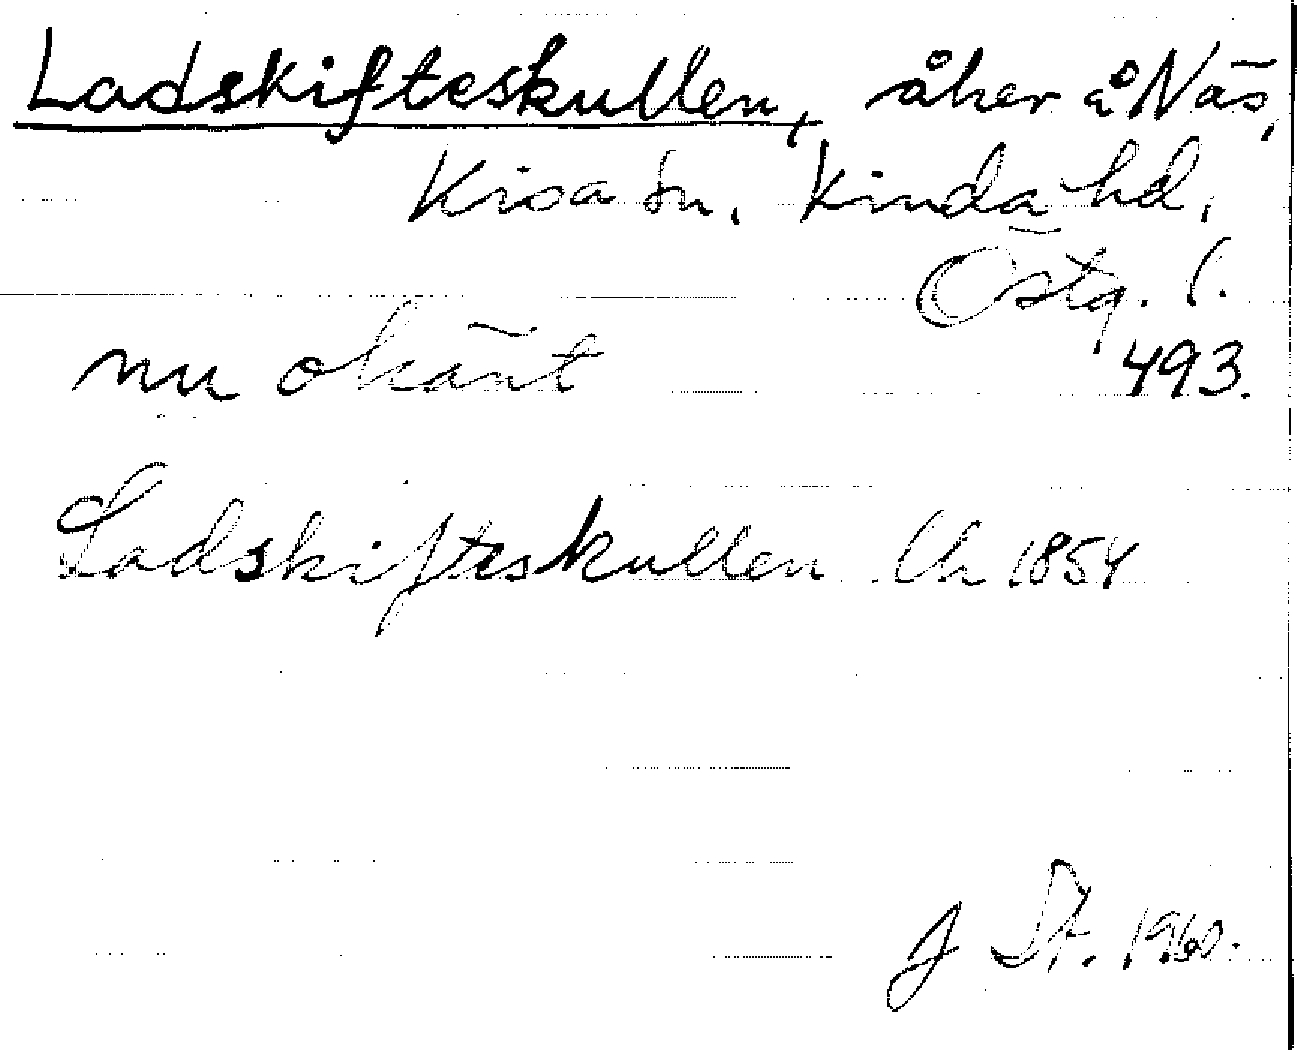 Ladskifteskullen, åker å Näs,
Kisa sn. Kinda hd,
Östg. l.
493.
nu okänt
Ladskifteskullen Ch 1854
J St. 1960.